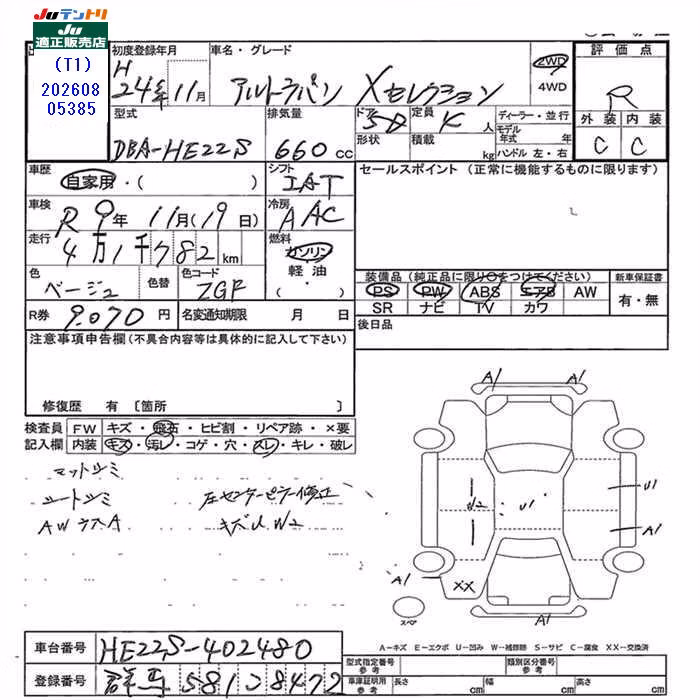 JUテントリ
JU
適正販売店
(T1)
202608
05385
初度登録年月
車名・グレード
H
24年11月 アルトラパン Xセレクション
2WD
4WD
評価点
R
型式
DBA-HE22S
排気量
660cc
ドア
形状
5D
定員 K 人
積載 kg
ディーラー・並行
モデル年式 年
ハンドル 左・右
外装 内装
C C
車歴
自家用・( )
シフト
IAT
セールスポイント (正常に機能するものに限ります)
車検
R 9年 11月(19日)
冷房
A AC
走行
4万1千782km
燃料
ガソリン
軽油
・( )
色
ベージュ
色替
色コード
ZGF
装備品(純正品に限り○をつけてください)
新車保証書
PS PW ABS エアB AW
SR ナビ TV カワ
有・無
R券 9.070円
名変通知期限 月 日
後日品
注意事項申告欄(不具合内容等は具体的に記入して下さい)
修復歴 有〔箇所 〕
検査員
記入欄
FW キズ・飛石・ヒビ割・リペア跡・×要
内装 キズ・汚レ・コゲ・穴・スレ・キレ・破レ
マットシミ
シートシミ
AWウスA
左センターピラー修正
キズU W2
A1 A1
U2 U1 U1
A1
A1 XX
A1
スペア
A-キズ E-エクボ U-凹み W-補修跡 S-サビ C-腐食 XX-交換済
車台番号 HE22S-402480
登録番号 群馬 581 ひ 8472
型式指定番号
参考
類別区分番号
参考
車庫証明用
参考
長さ cm 幅 cm 高さ cm